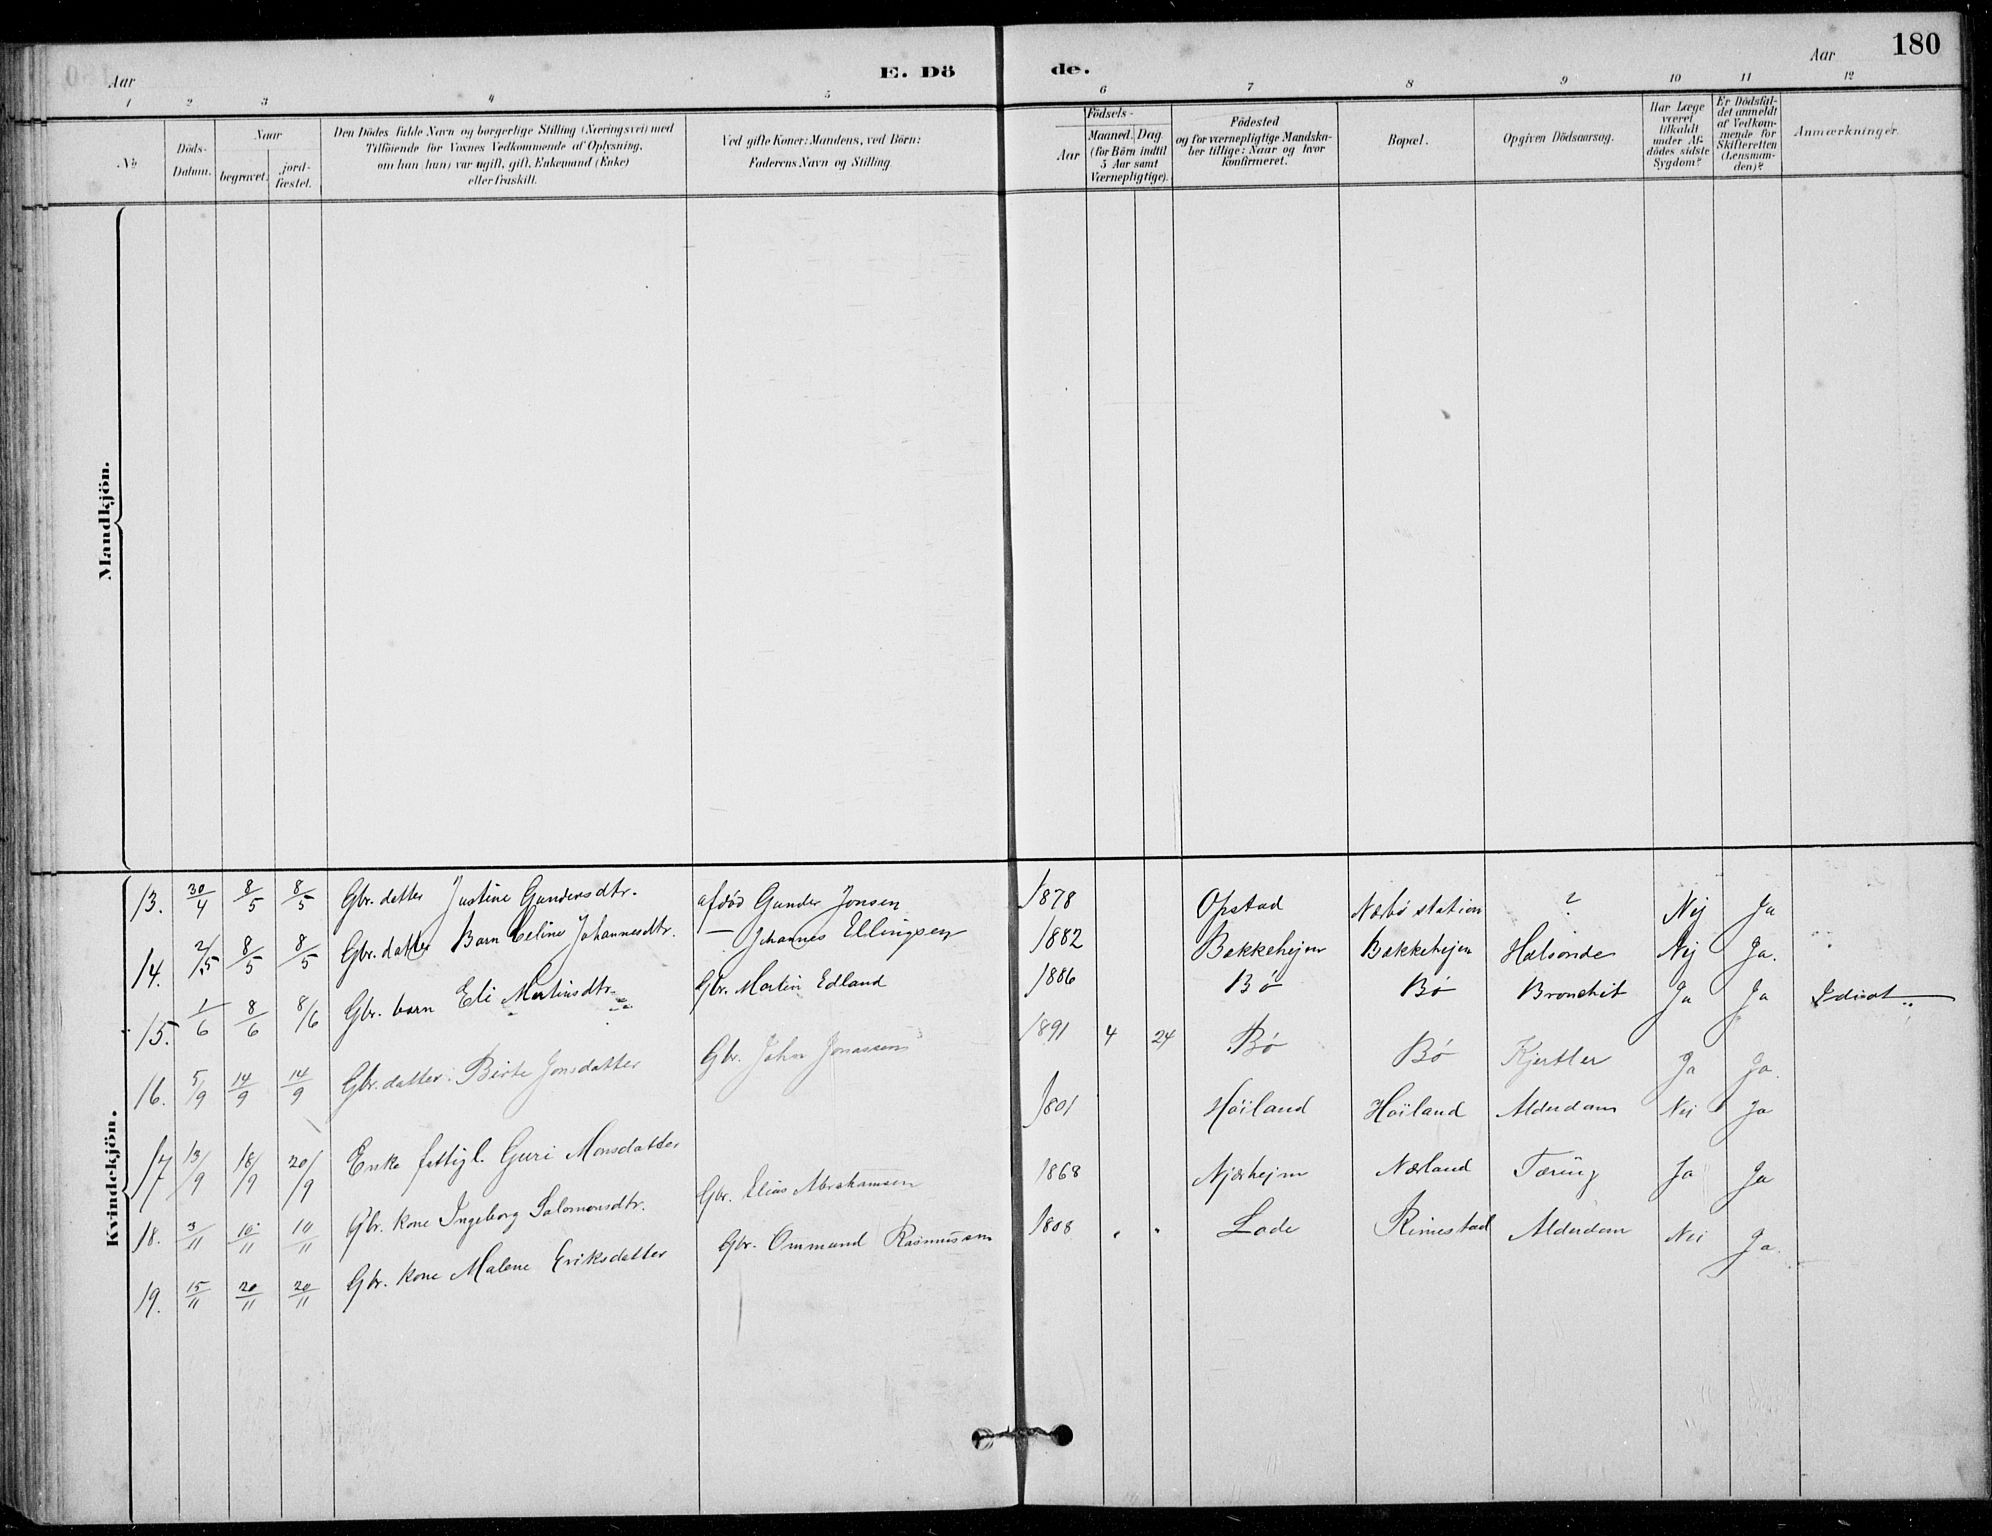 Aar
E. Dö
de.
Aar
180
1 2 3 4 5 6 7 8 9 10 11 12
No
Döds-
Datum.
Naar
begravet.
jord-
fæstet.
Den Dödes fulde Navn og borgerlige Stilling (Næringsvei) med
Tilföiende for Voxnes Vedkommende af Oplysning,
om han (hun) var ugift, gift, Enkemand (Enke)
eller fraskilt.
Ved gifte Koner: Mandens, ved Börn:
Faderens Navn og Stilling.
Födsels-
Aar
Maaned. Dag.
(for Börn indtil
5 Aar samt
Værnepligtige).
Födested
og for værnepligtige Mandska-
ber tillige: Naar og hvor
konfirmeret.
Bopæl.
Opgiven Dödsaarsag.
Har Læge
været
tilkaldt
under Af-
dödes sidste
Sygdom?
Er Dödsfal-
det anmeldt
af Vedkom-
mende for
Skifteretten
(Lensman-
den)?
Anmærkninger.
Mandkjön.
Kvindekjön.
13. 30/4 8/5 8/5 Gbr. datter Justine Gundersdtr. afdød Gunder Jonsen 1878 Opstad Nærbø station ? Nej Ja
14. 2/5 8/5 8/5 Gbr. datter Barn Celine Johannesdtr. — Johannes Ellingsen 1882 Bakkehejen Bakkehejen Halsonde Nej Ja.
15. 1/6 8/6 8/6 Gbr. barn Eli Martinsdtr. Gbr. Martin Edland 1886 Bø Bø Bronchit Ja Ja Idiot
16. 5/9 14/9 14/9 Gbr. datter Birte Jonsdatter Gbr. John Jonassen 1891 4 24 Bø Bø Kjertler Ja Ja.
17 13/9 18/9 20/9 Enke fattigl. Guri Monsdatter 1801 Høiland Høiland Alderdom Nei Ja
18. 3/11 10/11 10/11 Gbr. kone Ingeborg Salomonsdtr. Gbr. Elias Abrahamsen 1868 Njærhejm Nærland Tæring Ja Ja
19. 15/11 20/11 20/11 Gbr. kone Malene Eriksdatter Gbr. Ommund Rasmussen 1808 " " Lode Rimestad Alderdom Nei Ja.